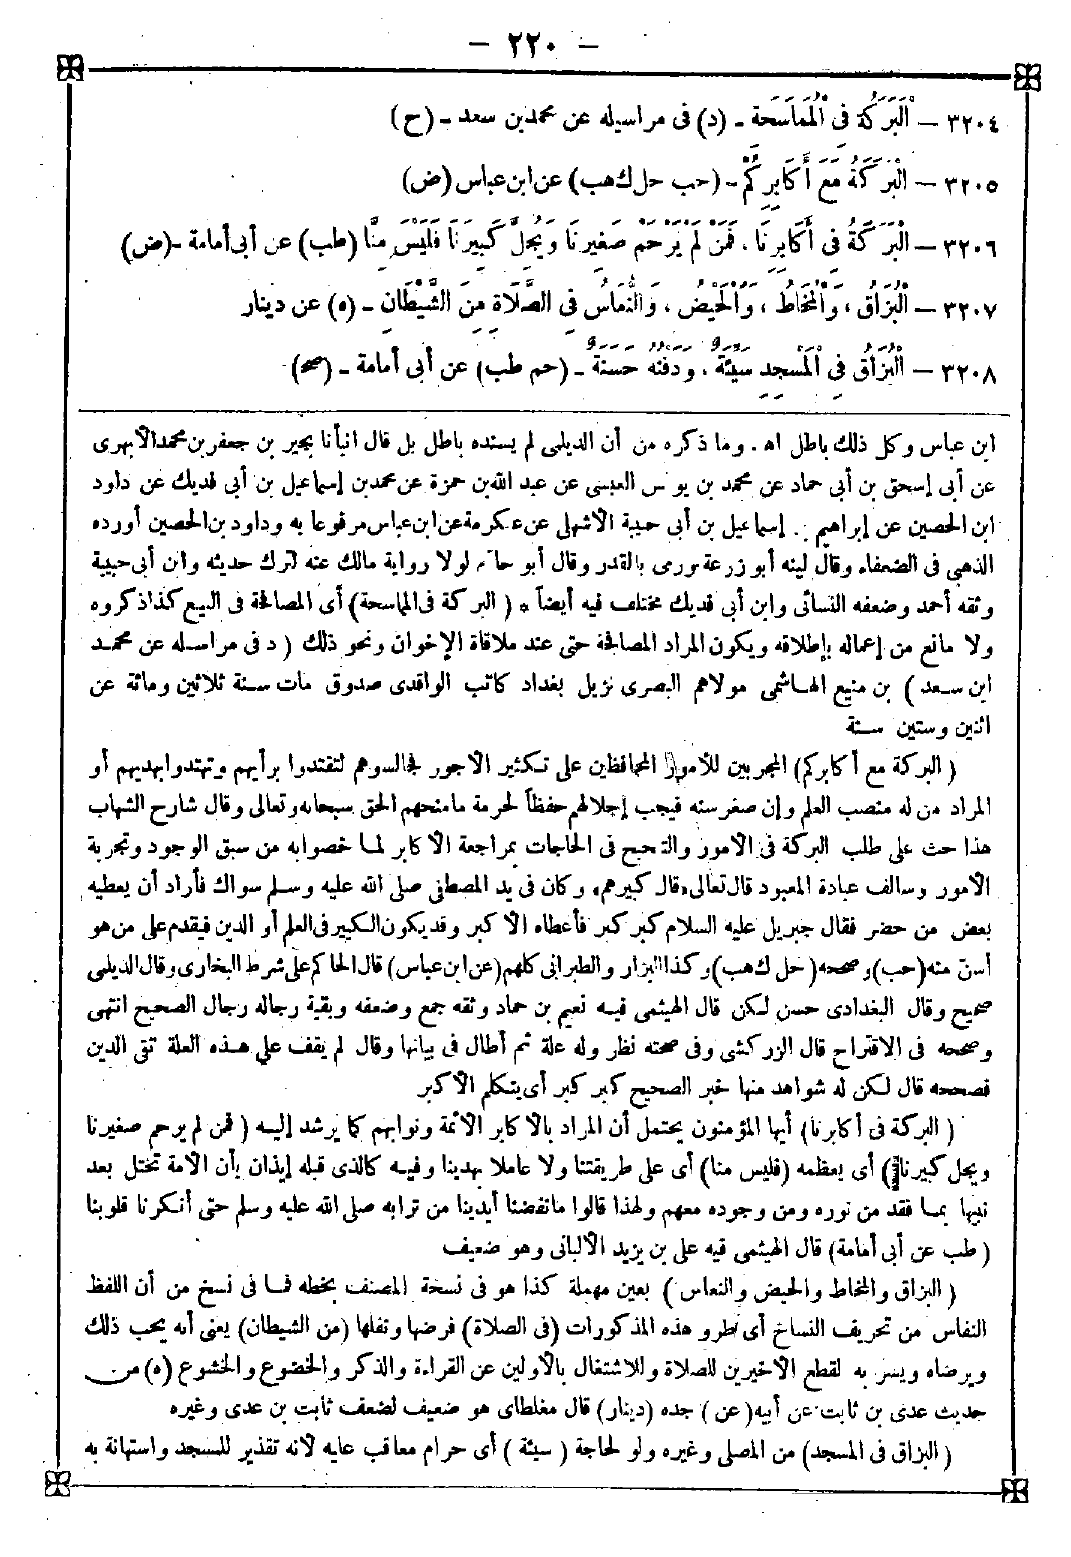 – ٢٢٠ –
٣٢٠٤ – اَلْبَرَكَةُ فِي الْمُمَاسَحَةِ – (د) فى مراسيله عن محمد بن سعد – (ح)
٣٢٠٥ – الْبَرَكَةُ مَعَ أَكَابِرِكُمْ – (حب حل ك هب) عن ابن عباس (ض)
٣٢٠٦ – الْبَرَكَةُ فِي أَكَابِرِنَا ، فَمَنْ لَمْ يَرْحَمْ صَغِيرَنَا وَيُجِلَّ كَبِيرَنَا فَلَيْسَ مِنَّا (طب) عن أبى أمامة – (ض)
٣٢٠٧ – الْبُزَاقُ ، وَالْمُخَاطُ ، وَالْحَيْضُ ، وَالنُّعَاسُ فِي الصَّلَاةِ مِنَ الشَّيْطَانِ – (ه) عن دينار
٣٢٠٨ – الْبُزَاقُ فِي الْمَسْجِدِ سَيِّئَةٌ ، وَدَفْنُهُ حَسَنَةٌ – (حم طب) عن أبى أمامة – (صح)
ابن عباس وكل ذلك باطل اه . وما ذكره من أن الديلمى لم يسنده باطل بل قال انبأنا بجير بن جعفر بن محمد الأبهرى
عن أبى إسحق بن أبى حماد عن محمد بن يونس العبسى عن عبد الله بن حمزة عن محمد بن إسماعيل بن أبى فديك عن داود
ابن الحصين عن إبراهيم بن إسماعيل بن أبى حبيبة الأشهلى عن عكرمة عن ابن عباس مرفوعا به وداود بن الحصين أورده
الذهبى فى الضعفاء وقال لينه أبو زرعة ورمى بالقدر وقال أبو حاتم لولا رواية مالك عنه لترك حديثه وابن أبى حبيبة
وثقه أحمد وضعفه النسائى وابن أبى فديك مختلف فيه أيضاً * ( البركة فى المماسحة) أى المصافحة فى البيع كذا ذكروه
ولا مانع من إعماله بإطلاقه ويكون المراد المصافحة حتى عند ملاقاة الإخوان ونحو ذلك ( د فى مراسله عن محمد
ابن سعد ) بن منيع الهاشمى مولاهم البصرى نزيل بغداد كاتب الواقدى صدوق مات سنة ثلاثين ومائة عن
اثنين وستين سنة
( البركة مع أكابركم) المجربين للأمور المحافظين على تكثير الأجور فجالسوهم لتقتدوا برأيهم وتهتدوا بهديهم أو
المراد من له منصب العلم وإن صغر سنه فيجب إجلالهم حفظاً لحرمة ما منحهم الحق سبحانه وتعالى وقال شارح الشهاب
هذا حث على طلب البركة فى الأمور والتبحبح فى الحاجات بمراجعة الأكابر لما خصوا به من سبق الوجود وتجربة
الأمور وسالف عبادة المعبود قال تعالى «قال كبيرهم» وكان فى يد المصطفى صلى الله عليه وسلم سواك فأراد أن يعطيه
بعض من حضر فقال جبريل عليه السلام كبر كبر فأعطاه الأكبر وقد يكون الكبير فى العلم أو الدين فيقدم على من هو
أسن منه (حب) وصححه (حل ك هب) وكذا البزار والطبرانى كلهم (عن ابن عباس) قال الحاكم على شرط البخارى وقال الديلمى
صحيح وقال البغدادى حسن لكن قال الهيثمى فيه نعيم بن حماد وثقه جمع وضعفه وبقية رجاله رجال الصحيح انتهى
وصححه فى الاقتراح قال الزركشى وفى صحته نظر وله علة ثم أطال فى بيانها وقال لم يقف على هذه العلة تقى الدين
فصححه قال لكن له شواهد منها خبر الصحيح كبر كبر أى يتكلم الأكبر
( البركة فى أكابرنا) أيها المؤمنون يحتمل أن المراد بالأكابر الأئمة ونوابهم كما يرشد إليه ( فمن لم يرحم صغيرنا
ويجل كبيرنا) أى يعظمه (فليس منا) أى على طريقتنا ولا عاملا بهدينا وفيه كالذى قبله إيذان بأن الأمة تختل بعد
نبيها بما فقد من نوره ومن وجوده معهم ولهذا قالوا ما نفضنا أيدينا من ترابه صلى الله عليه وسلم حتى أنكرنا قلوبنا
( طب عن أبى أمامة) قال الهيثمى فيه على بن يزيد الألبانى وهو ضعيف
( البزاق والمخاط والحيض والنعاس ) بعين مهملة كذا هو فى نسخة المصنف بخطه فما فى نسخ من أن اللفظ
النفاس من تحريف النساخ أى طرو هذه المذكورات (فى الصلاة) فرضها ونفلها (من الشيطان) يعنى أنه يحب ذلك
ويرضاه ويسر به لقطع الأخيرين للصلاة وللاشتغال بالأولين عن القراءة والذكر والخضوع والخشوع (ه) من
حديث عدى بن ثابت عن أبيه (عن ) جده (دينار) قال مغلطاى هو ضعيف لضعف ثابت بن عدى وغيره
( البزاق فى المسجد) من المصلى وغيره ولو لحاجة ( سيئة ) أى حرام معاقب عليه لأنه تقذير للمسجد واستهانة به